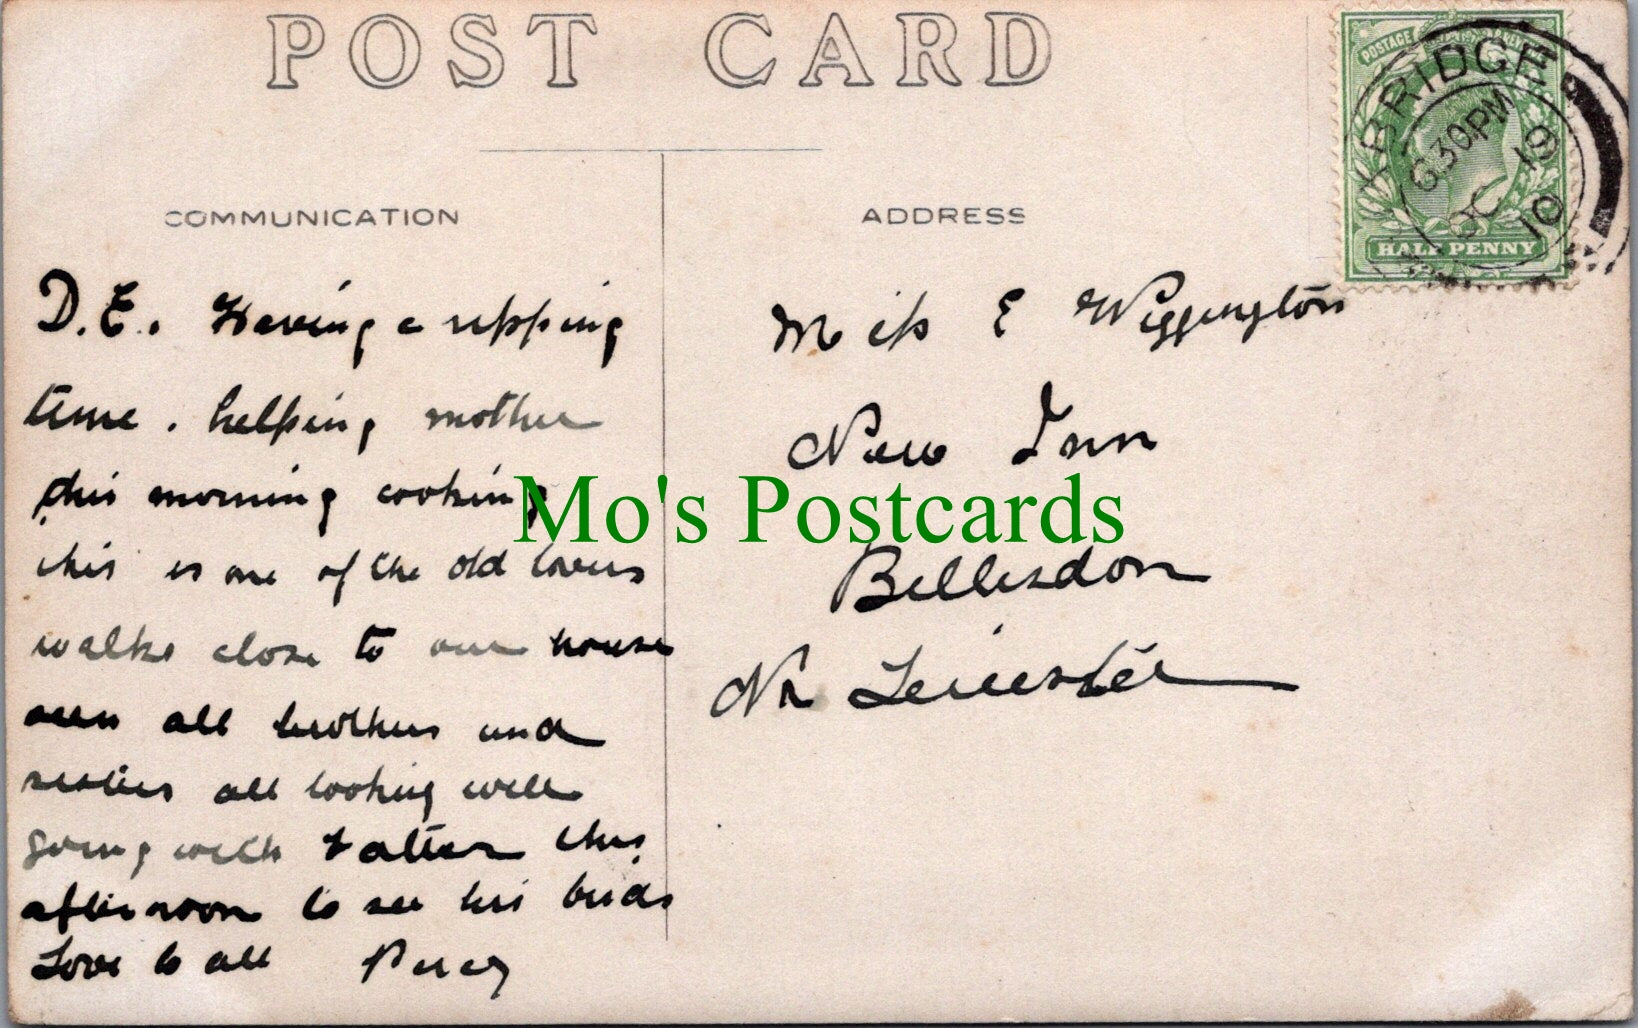 POST CARD
COMMUNICATION
D.E. Having a ripping
time. helping mother
this morning cooking
this is one of the old lovers
walks close to our house
seen all brothers and
sisters all looking well
going with Father this
afternoon to see his birds
Love to all Percy
ADDRESS
Miss E Wiggington
New Inn
Billesdon
Nr Leicester
POSTAGE
HALF PENNY
XBRIDGE
630PM
OC 19
10
Mo's Postcards